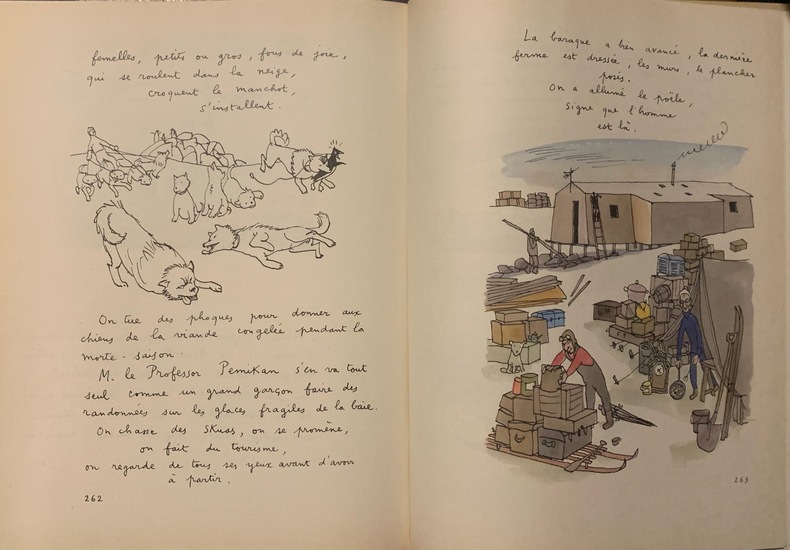 femelles, petits ou gros, fous de joie,
qui se roulent dans la neige,
croquent le manchot,
s'installent.
On tue des phoques pour donner aux
chiens de la viande congelée pendant la
morte-saison.
M. le Professor Pemikan s'en va tout
seul comme un grand garçon faire des
randonnées sur les glaces fragiles de la baie.
On chasse des Skuas, on se promène,
on fait du tourisme,
on regarde de tous ses yeux avant d'avoir
à partir.
262
La baraque a bien avancé, la dernière
ferme est dressée, les murs, le plancher
posés.
On a allumé le poêle,
signe que l'homme
est là.
263